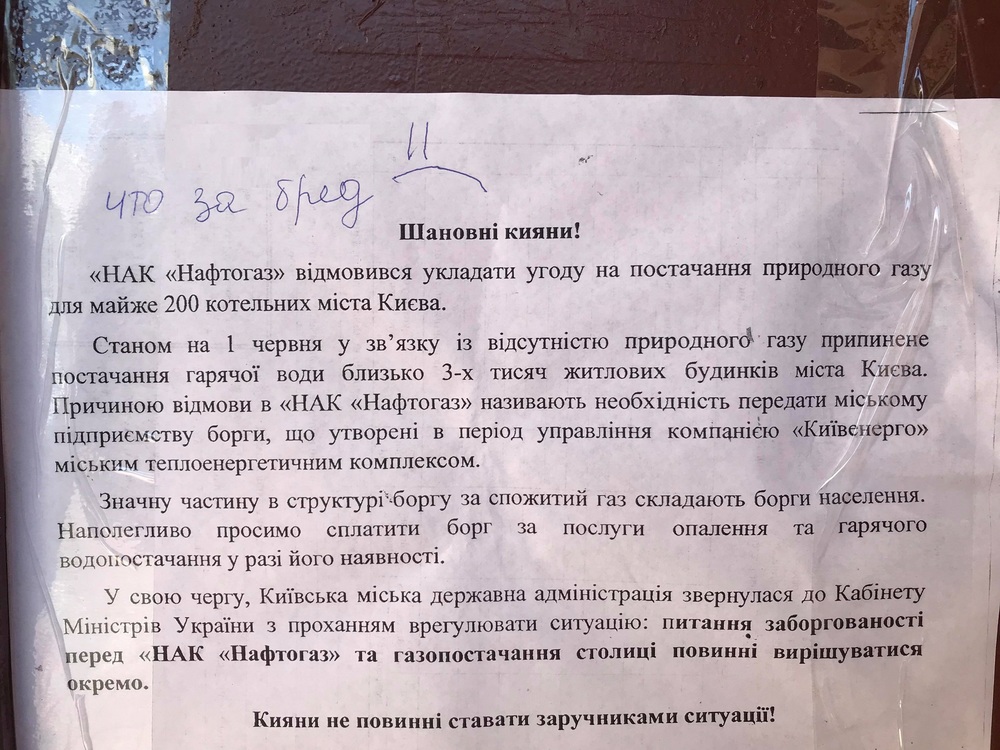 что за бред
Шановні кияни!
«НАК «Нафтогаз» відмовився укладати угоду на постачання природного газу
для майже 200 котельних міста Києва.
Станом на 1 червня у зв’язку із відсутністю природного газу припинене
постачання гарячої води близько 3-х тисяч житлових будинків міста Києва.
Причиною відмови в «НАК «Нафтогаз» називають необхідність передати міському
підприємству борги, що утворені в період управління компанією «Київенерго»
міським теплоенергетичним комплексом.
Значну частину в структурі боргу за спожитий газ складають борги населення.
Наполегливо просимо сплатити борг за послуги опалення та гарячого
водопостачання у разі його наявності.
У свою чергу, Київська міська державна адміністрація звернулася до Кабінету
Міністрів України з проханням врегулювати ситуацію: питання заборгованості
перед «НАК «Нафтогаз» та газопостачання столиці повинні вирішуватися
окремо.
Кияни не повинні ставати заручниками ситуації!